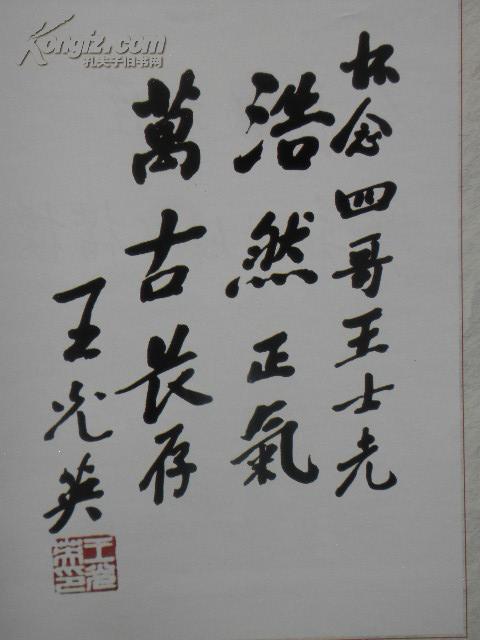 怀念四哥王士光
浩然正氣
萬古長存
王光英
王光英印
Kongfz.com
孔夫子旧书网